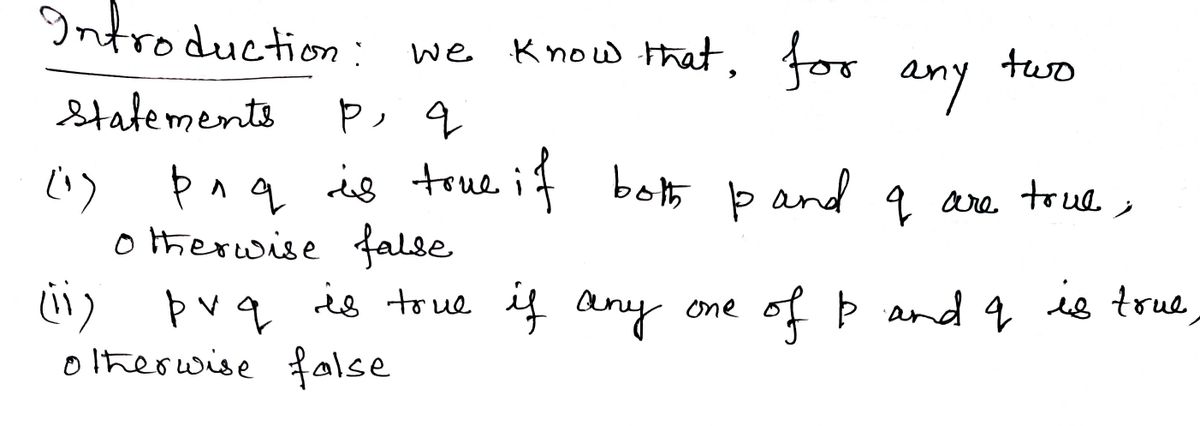 Introduction: we know that, for any two
statements p, q
(i) p ∧ q is true if both p and q are true,
otherwise false
(ii) p ∨ q is true if any one of p and q is true,
otherwise false